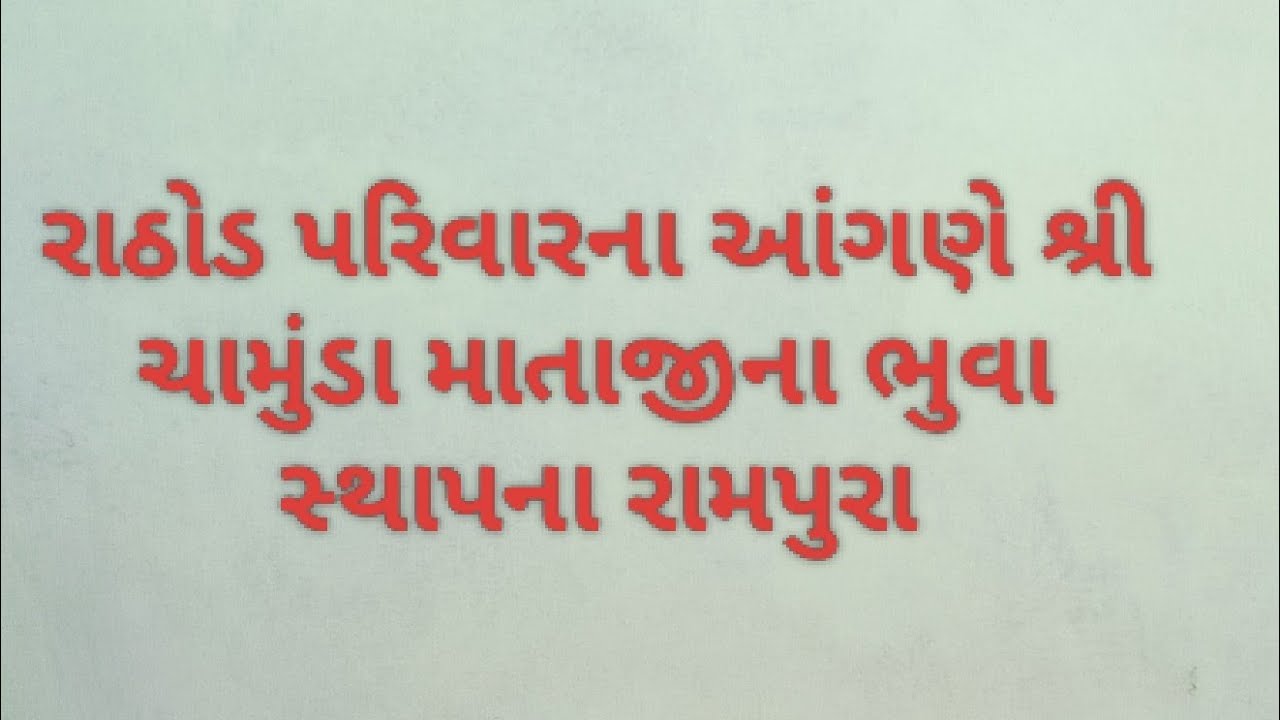 રાઠોડ પરિવારના આંગણે શ્રી
ચામુંડા માતાજીના ભુવા
સ્થાપના રામપુરા